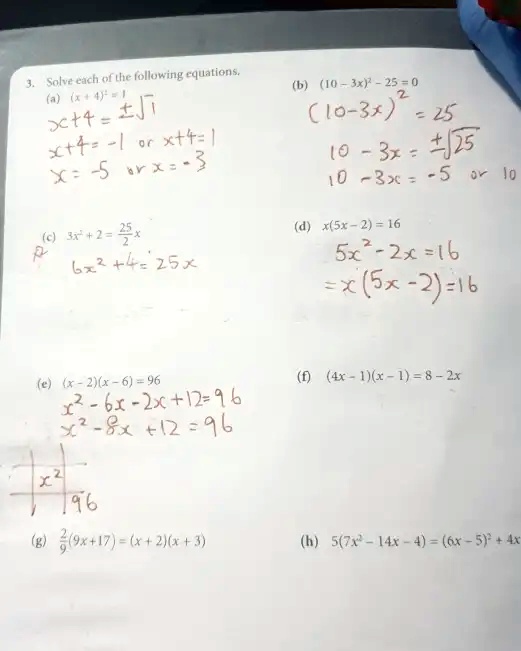 3. Solve each of the following equations.
(a) (x + 4)² = 1
x+4 = ±√1
x+4 = -1 or x+4=1
x = -5 or x = -3
(b) (10 – 3x)² – 25 = 0
(10-3x)² = 25
10 - 3x = ±√25
10 - 3x = -5 or 10
(c) 3x² + 2 = 25/2 x
6x² + 4 = 25x
(d) x(5x – 2) = 16
5x² - 2x = 16
= x(5x - 2) = 16
(e) (x – 2)(x – 6) = 96
x² - 6x - 2x + 12 = 96
x² - 8x + 12 = 96
x²
96
(f) (4x – 1)(x – 1) = 8 – 2x
(g) 2/9 (9x+17) = (x + 2)(x + 3)
(h) 5(7x² – 14x – 4) = (6x – 5)² + 4x